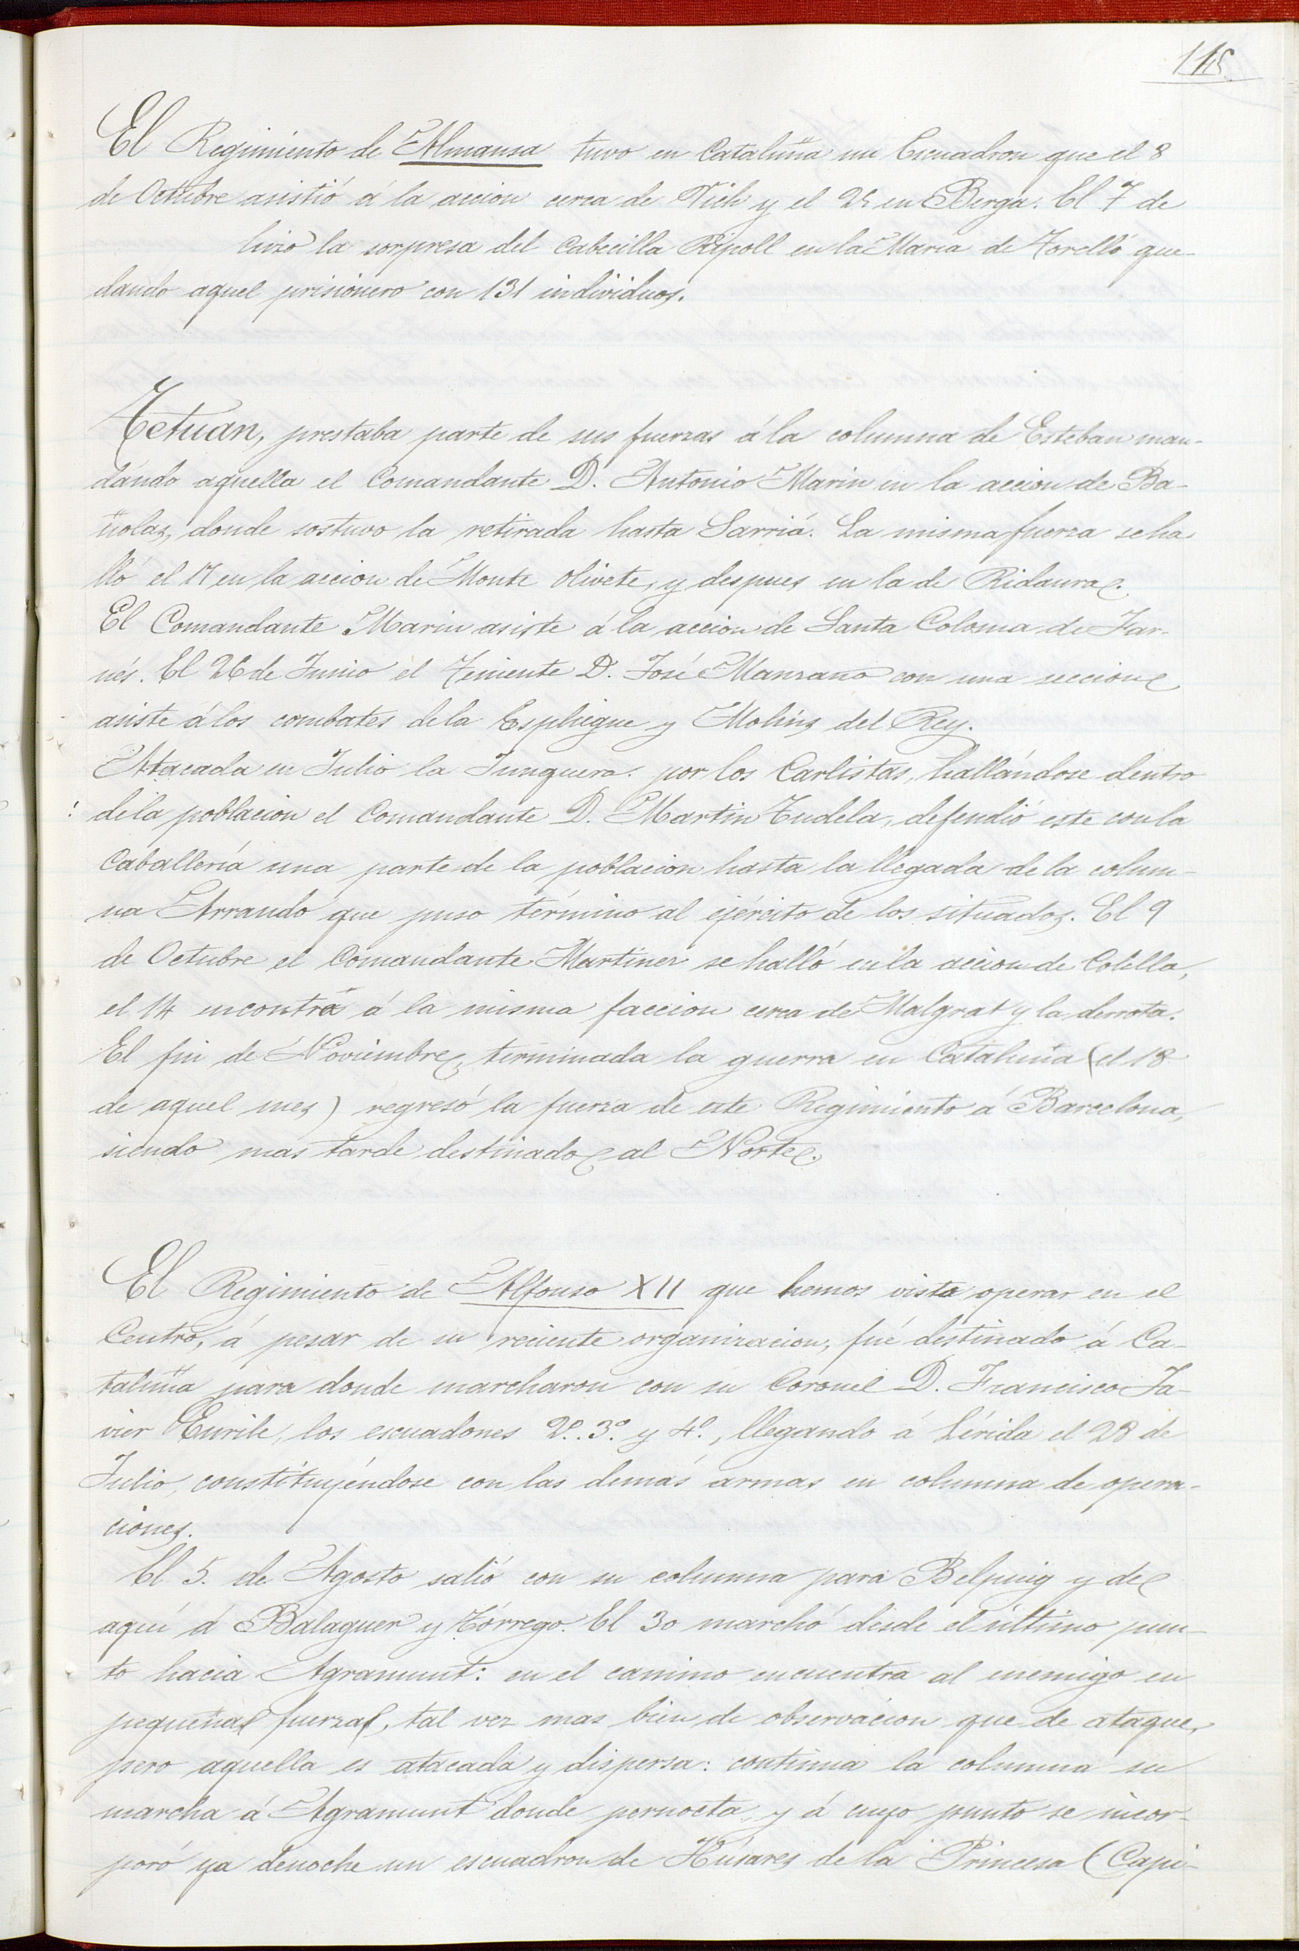 115
El Regimiento de Almansa tuvo en Cataluña un Escuadron que el 8
de Octubre asistió á la accion cerca de Vich y el 25 en Berga. El 7 de
hizo la sorpresa del Cabecilla Ripoll en la Maria de Torelló que-
dando aquel prisionero con 131 individuos.
Tetuan, prestaba parte de sus fuerzas á la columna de Esteban man-
dando aquella el Comandante D. Antonio Marin en la accion de Ba-
ñolas, donde sostuvo la retirada hasta Sarriá. La misma fuerza se ha
lló el 17 en la accion de Monte Olivete, y despues en la de Ridaura.
El Comandante Marin asiste á la accion de Santa Coloma de Far-
nés. El 26 de Junio el Teniente D. José Manzano con una seccion
asiste á los combates de la Espluigue y Molins del Rey.
Atacada en Julio la Junquera por los Carlistas, hallándose dentro
de la poblacion el Comandante D. Martin Tudela, defendió este con la
Caballería una parte de la poblacion hasta la llegada de la colum-
na Arrando que puso término al ejército de los situados. El 9
de Octubre el Comandante Martinez se halló en la accion de Colella,
el 14 encontrá á la misma faccion cerca de Malgrat y la derrota.
El fin de Noviembre, terminada la guerra en Cataluña (el 18
de aquel mes) regresó la fuerza de este Regimiento á Barcelona,
siendo mas tarde destinado al Norte.
El Regimiento de Alfonso XII que hemos visto operar en el
Centro, á pesar de su reciente organizacion, fué destinado á Ca-
taluña para donde marcharon con su Coronel D. Francisco Ja-
vier Enrile, los escuadones 2º. 3º. y 4º., llegando á Lérida el 28 de
Julio, constituyéndose con las demás armas en columna de opera-
ciones.
El 5. de Agosto salió con su columna para Belpuig y de
aquí á Balaguer y Tórrego. El 30 marchó desde el último pun-
to hacia Agramunt: en el camino encuentra al enemigo en
pequeñas fuerzas, tal vez mas bien de observacion que de ataque,
pero aquella es atacada y dispersa: continua la columna su
marcha á Agramunt donde pernocta y á cuyo punto se incor-
poró ya denoche un escuadron de Húsares de la Princesa (Capi-